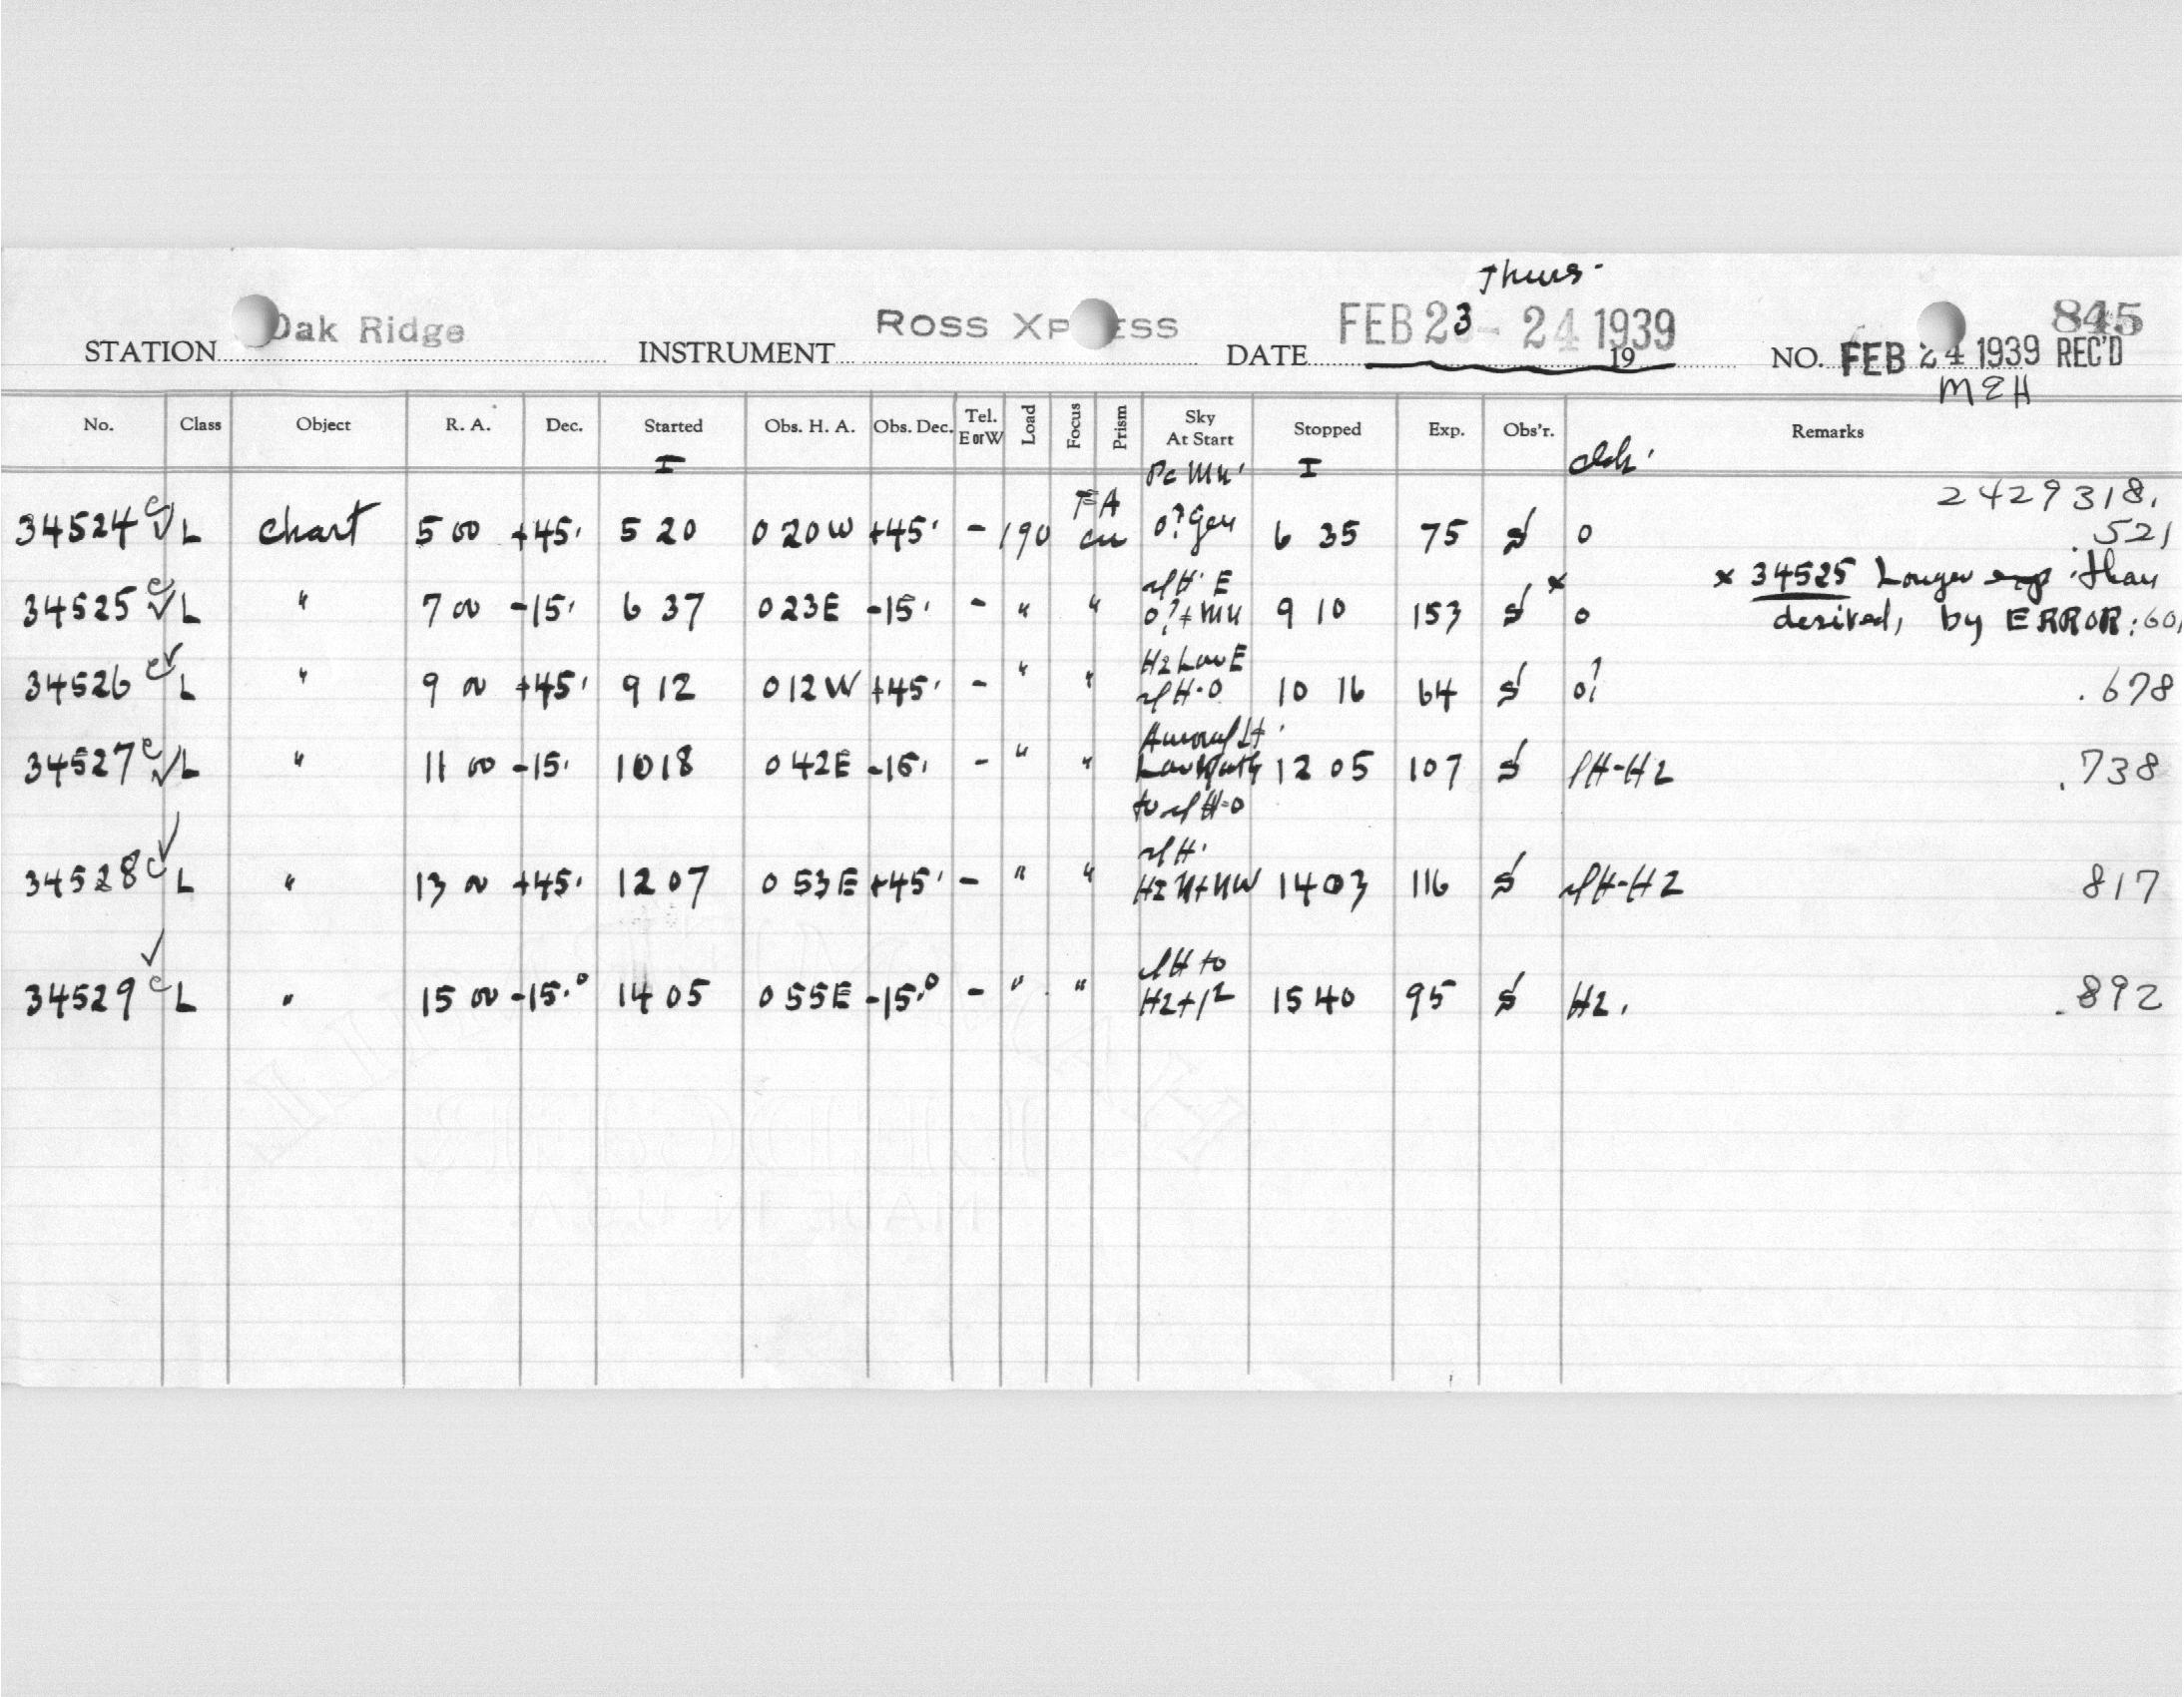 Thurs.
STATION Oak Ridge INSTRUMENT ROSS XP ESS DATE FEB 23 - 24 1939 19 NO. 845
FEB 24 1939 REC'D
M2H
No. Class Object R. A. Dec. Started Obs. H. A. Obs. Dec. Tel. E or W Load Focus Prism Sky At Start Stopped Exp. Obs'r. Remarks
I I
2429318.
34524 c √ L Chart 5 00 +45. 5 20 0 20 W +45. - 190 FA 0? Gen 6 35 75 0 .521
34525 c √ L " 7 00 -15. 6 37 0 23 E -15. - " " 9 10 153 x 0
x 34525 Longer exp. than
desired, by ERROR: 60
34526 c √ L " 9 00 +45. 9 12 0 12 W +45. - " " Hz Low E 10 16 64 0? .678
34527 c √ L " 11 00 -15. 10 18 0 42 E -15. - " " Auroral Lt. 12 05 107 .738
34528 c √ L " 13 00 +45. 12 07 0 53 E +45. - " " Hz N+NW 14 03 116 817
34529 c √ L " 15 00 -15.° 14 05 0 55 E -15.° - " " 15 40 95 Hz. .892
MADE IN U.S.A.